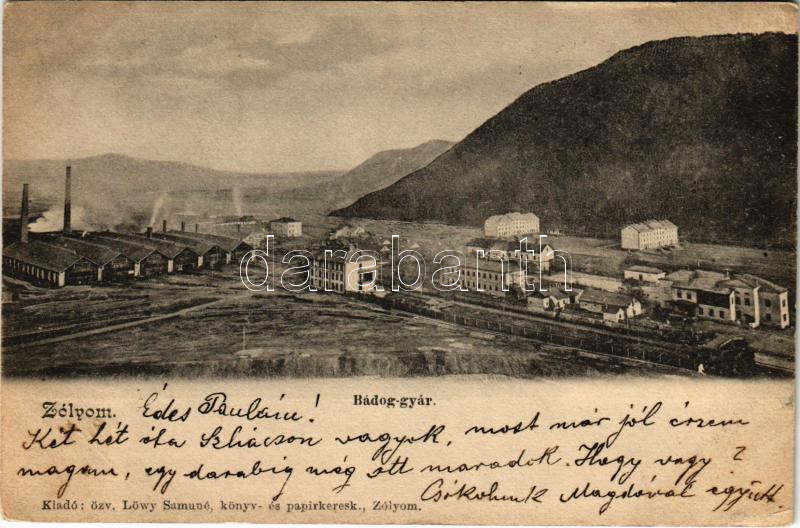 darabanth
Zólyom. Bádog-gyár.
Édes Paulám!
Két hét óta Szliácson vagyok, most már jól érzem
magam, egy darabig még ott maradok. Hogy vagy?
Csókolunk Magdóval együtt
Kiadó: özv. Löwy Samuné, könyv- és papirkeresk., Zólyom.